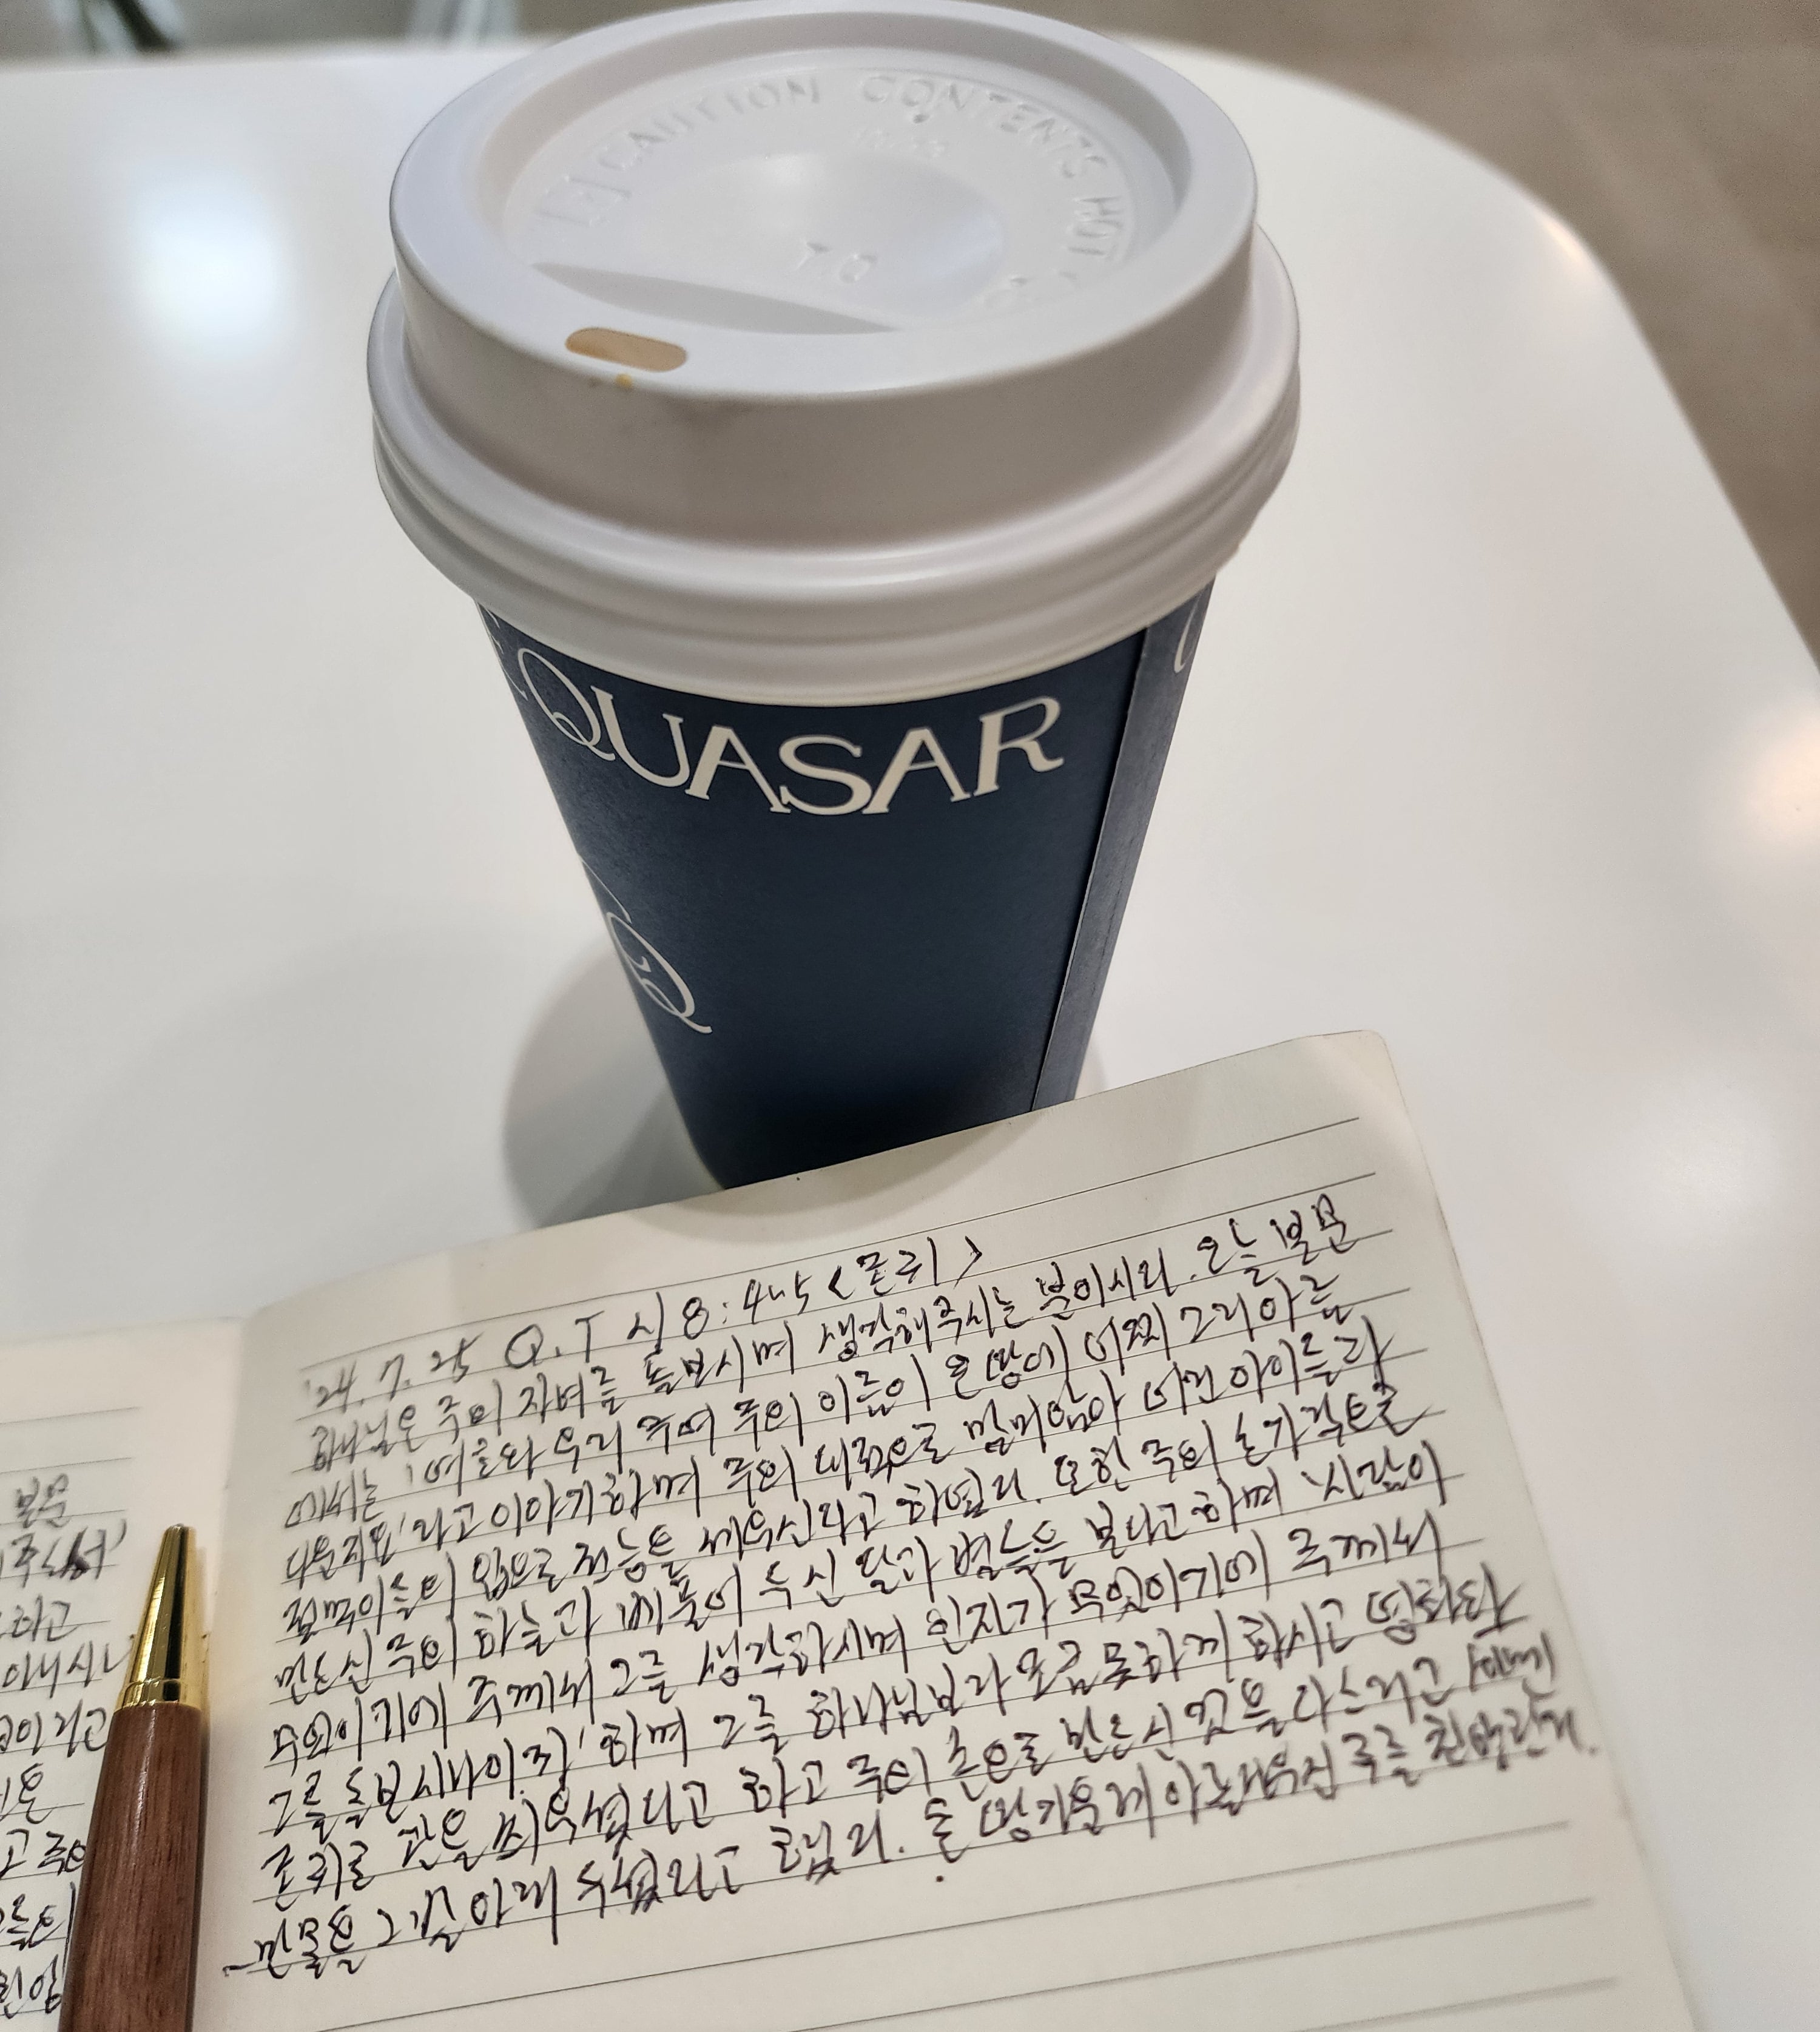 CAUTION CONTENTS HOT
QUASAR
Q
'24. 7. 25 Q.T 시 8:4~5 <존귀>
하나님은 주의 자녀를 돌보시며 생각해주시는 분이시라. 오늘 본문
에서는 '여호와 우리 주여 주의 이름이 온 땅에 어찌 그리 아름
다운지요'라고 이야기하며 주의 대적으로 말미암아 어린 아이들과
젖먹이들의 입으로 권능을 세우신다고 하였다. 또한 주의 손가락으로
만드신 주의 하늘과 베풀어 두신 달과 별들을 본다고 하며 '사람이
무엇이기에 주께서 그를 생각하시며 인자가 무엇이기에 주께서
그를 돌보시나이까' 하며 그를 하나님보다 조금 못하게 하시고 영화와
존귀로 관을 씌우셨다고 하고 주의 손으로 만드신 것을 다스리고
만물을 그 발 아래 두셨다고 하였다.
본문
하고